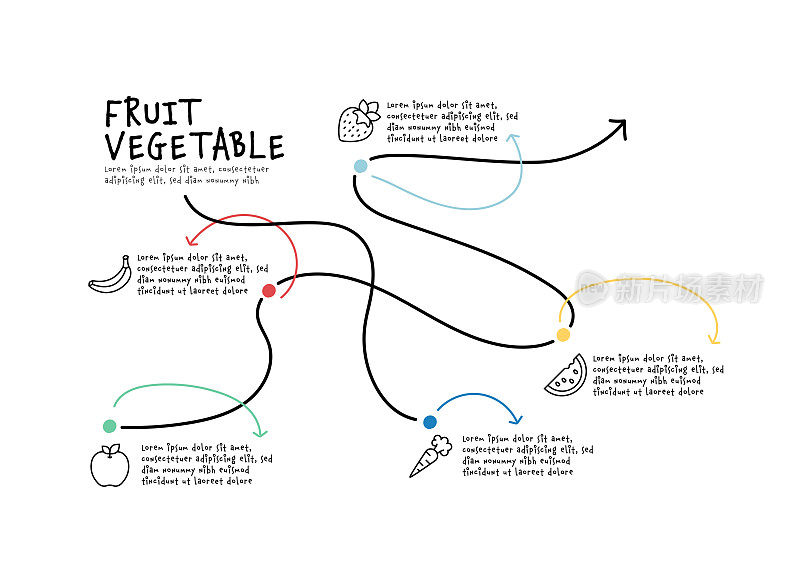 FRUIT
VEGETABLE
Lorem ipsum dolor sit amet, consectetuer
adipiscing elit, sed diam nonummy nibh
Lorem ipsum dolor sit amet,
consectetuer adipiscing elit, sed
diam nonummy nibh euismod
tincidunt ut laoreet dolore
Lorem ipsum dolor sit amet,
consectetuer adipiscing elit, sed
diam nonummy nibh euismod
tincidunt ut laoreet dolore
new 新片场素材
Lorem ipsum dolor sit amet,
consectetuer adipiscing elit, sed
diam nonummy nibh euismod
tincidunt ut laoreet dolore
Lorem ipsum dolor sit amet,
consectetuer adipiscing elit, sed
diam nonummy nibh euismod
tincidunt ut laoreet dolore
Lorem ipsum dolor sit amet,
consectetuer adipiscing elit, sed
diam nonummy nibh euismod
tincidunt ut laoreet dolore